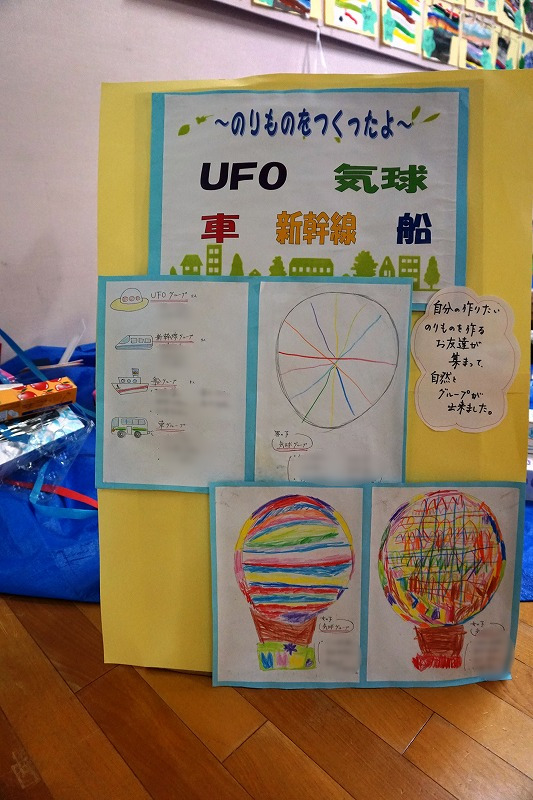 ～のりものをつくったよ～
UFO 気球
車 新幹線 船
UFOグループ
新幹線グループ
船グループ
車グループ
自分の作りたい
のりものを作る
お友達が
集まって、
自然と
グループが
出来ました。
男の子
気球グループ
女の子
気球グループ
女の子